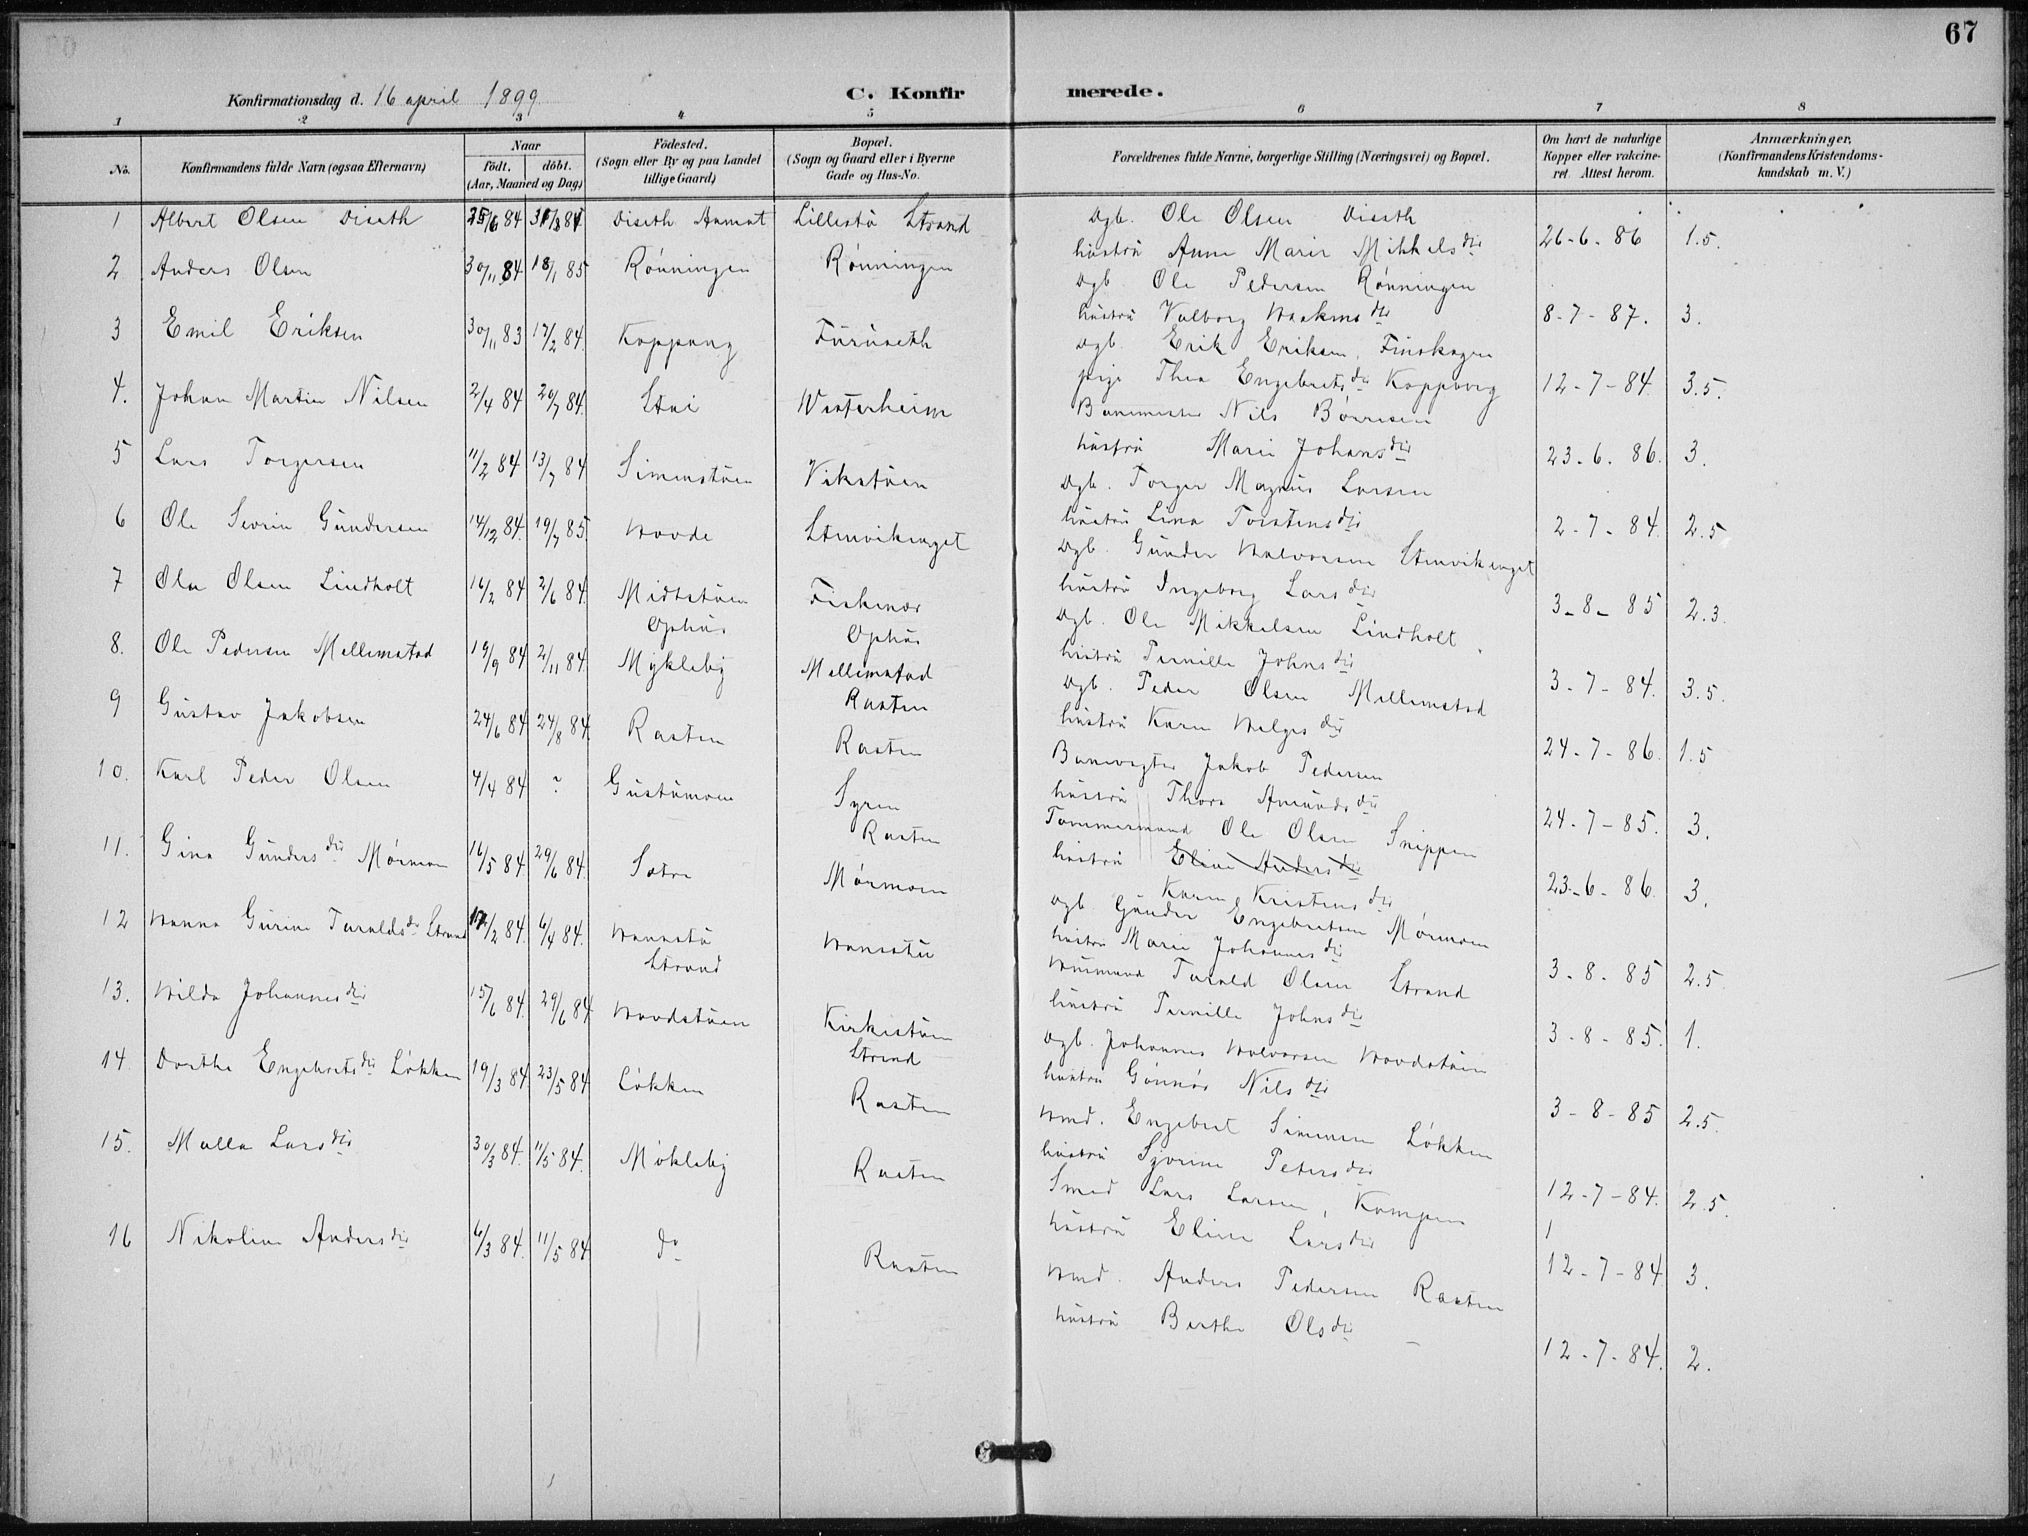 67
Konfirmationsdag d. 16 april 1899.
C. Konfirmerede.
1 2 3 4 5 6 7 8
No.
Konfirmandens fulde Navn (ogsaa Efternavn)
Naar
födt. döbt.
(Aar, Maaned og Dag)
Födested.
(Sogn eller By og paa Landet
tillige Gaard)
Bopæl.
(Sogn og Gaard eller i Byerne
Gade og Hus-No.
Forældrenes fulde Navne, borgerlige Stilling (Næringsvei) og Bopæl.
Om havt de naturlige
Kopper eller vakcine-
ret. Attest herom.
Anmærkninger,
(Konfirmandens Kristendoms-
kundskab m. V.)
1 Albert Olsen Diseth 84 84 Diseth Aamot Lillestu Strand Dgb. Ole Olsen Diseth
hustru Anne Marie Mikkelsdtr 26-6-86 1.5.
2 Anders Olsen 30/11 84 18/1 85 Rönningen Rönningen Dgb. Ole Pedersen Rönningen
hustru Valborg Haakensdtr 8-7-87. 3.
3 Emil Eriksen 30/11 83 17/2 84. Koppang Furuseth Dgb. Erik Eriksen, Finskogen
pige Thea Engebretsdtr Koppang 12-7-84. 3.5.
4. Johan Martin Nilsen 2/4 84 20/7 84. Stai Westerheim Banemester Nils Börresen
hustru Marie Johansdtr 23-6-86. 3.
5 Lars Torgersen 11/2 84 13/7 84 Simenstuen Vikstuen Dgb. Torger Magnus Larsen
hustru Lina Torstensdtr 2-7-84. 2.5
6 Ole Severin Gundersen 14/12 84. 19/7 85. Hovde Stenvikenget Dgb. Gunder Halvorsen Stenvikenget
hustru Ingeborg Larsdtr 3-8-85 2.3.
7 Ola Olsen Lindholt 16/2 84 2/6 84. Midtstuen
Ophus Fisknæs
Ophus Dgb. Ole Mikkelsen Lindholt.
hustru Pernille Johnsdtr 3-7-84. 3.5.
8. Ole Pedersen Mellemstad 19/9 84 2/11 84. Mykleby Mellemstad
Rasten Dgb. Peder Olsen Mellemstad
hustru Karen Helgesdtr 24-7-86. 1.5
9 Gustav Jakobsen 24/6 84 24/8 84. Rasten Rasten Banevogter Jakob Pedersen
hustru Thora Amundsdtr 24-7-85. 3.
10. Karl Peder Olsen 4/4 84 ? Gustumoen
Rasten Tømmermand Ole Olsen Snippen
hustru Eline Andersdtr
Karen Kristensdtr 23-6-86. 3.
11. Gina Gundersdtr Mörmoen 16/5 84 29/6 84. Sætre Mörmoen Dgb. Gunder Engebretsen Mörmoen
hustru Marie Johannesdtr 3-8-85 2.5.
12 Hanna Gurine Taraldsdtr Strand 84. 6/4 84. Hansstu
Strand Hansstu Husmand Tarald Olsen Strand
hustru Pernille Johnsdtr 3-8-85. 1.
13. Hilda Johannesdtr 15/6 84. 29/6 84. Hovdstuen Kirkestuen
Strand Dgb. Johannes Halvorsen Hovdstuen
hustru Gönnör Nilsdtr 3-8-85 2.5.
14. Dorthe Engebretsdtr Lökken 19/3 84. 23/5 84. Lökken Rasten Hmd. Engebret Simensen Lökken
hustru Syverine Petersdtr 12-7-84. 2.5.
15. Malla Larsdtr 30/3 84. 11/5 84. Mökleby Rasten Smed Lars Larsen, Kampen
hustru Eline Larsdtr 12-7-84 3.
16 Nikoline Andersdtr 6/3 84. 11/5 84 do Rasten Hmd. Anders Pedersen Rasten
hustru Berthe Olsdtr — 12-7-84. 2.